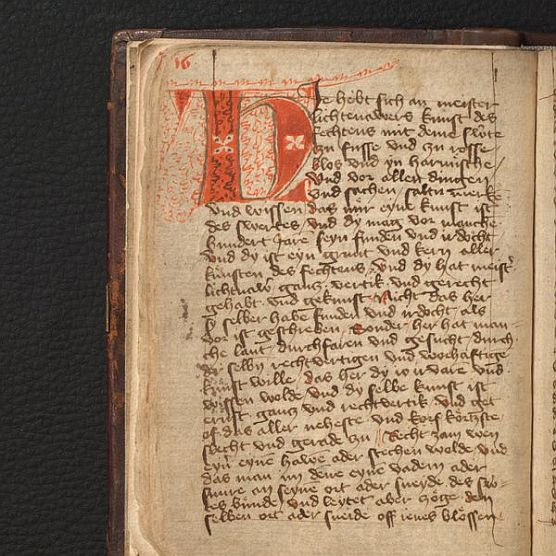 16
HIe hebt sich an meister
lichtenawers kunst des
fechtens mit deme swerte
czu fusse vnd czu rosse
blos vnd yn harnüsche /
Vnd vor allen dingen
vnd sachen saltu merke
vnd wissen das nür eyne kunst ist
des swertes / vnd dy mag vor manche
hundert Jare seyn funden vnd irdocht
vnd dy ist eyn grunt vnd kern aller
künsten des fechtens / vnd dy hat meist
lichtnawer gancz vertik vnd gerecht
gehabt vnd gekunst / Nicht das her
sy selber habe funden vnd irdocht als
vor ist geschreben / Sonder / her hat man
che lant durchfaren vnd gesucht durch
der selbn rechtvertigen vnd worhaftige
kunst wille / das her dy io irvare vnd
wissen wolde / vnd dy selbe kunst ist
ernst gancz vnd rechtvertik / vnd get
of das aller neheste vnd körtzste
slecht vnd gerade czu / Recht zam wen
eyn eynē hawē ader stechen wolde / vnd
das man im denne eynē vadem ader
snure an seyne ort ader sneyde des swer
tes bünde / vnd leytet aber czöge den
selben ort ader sneide off ienes blössen